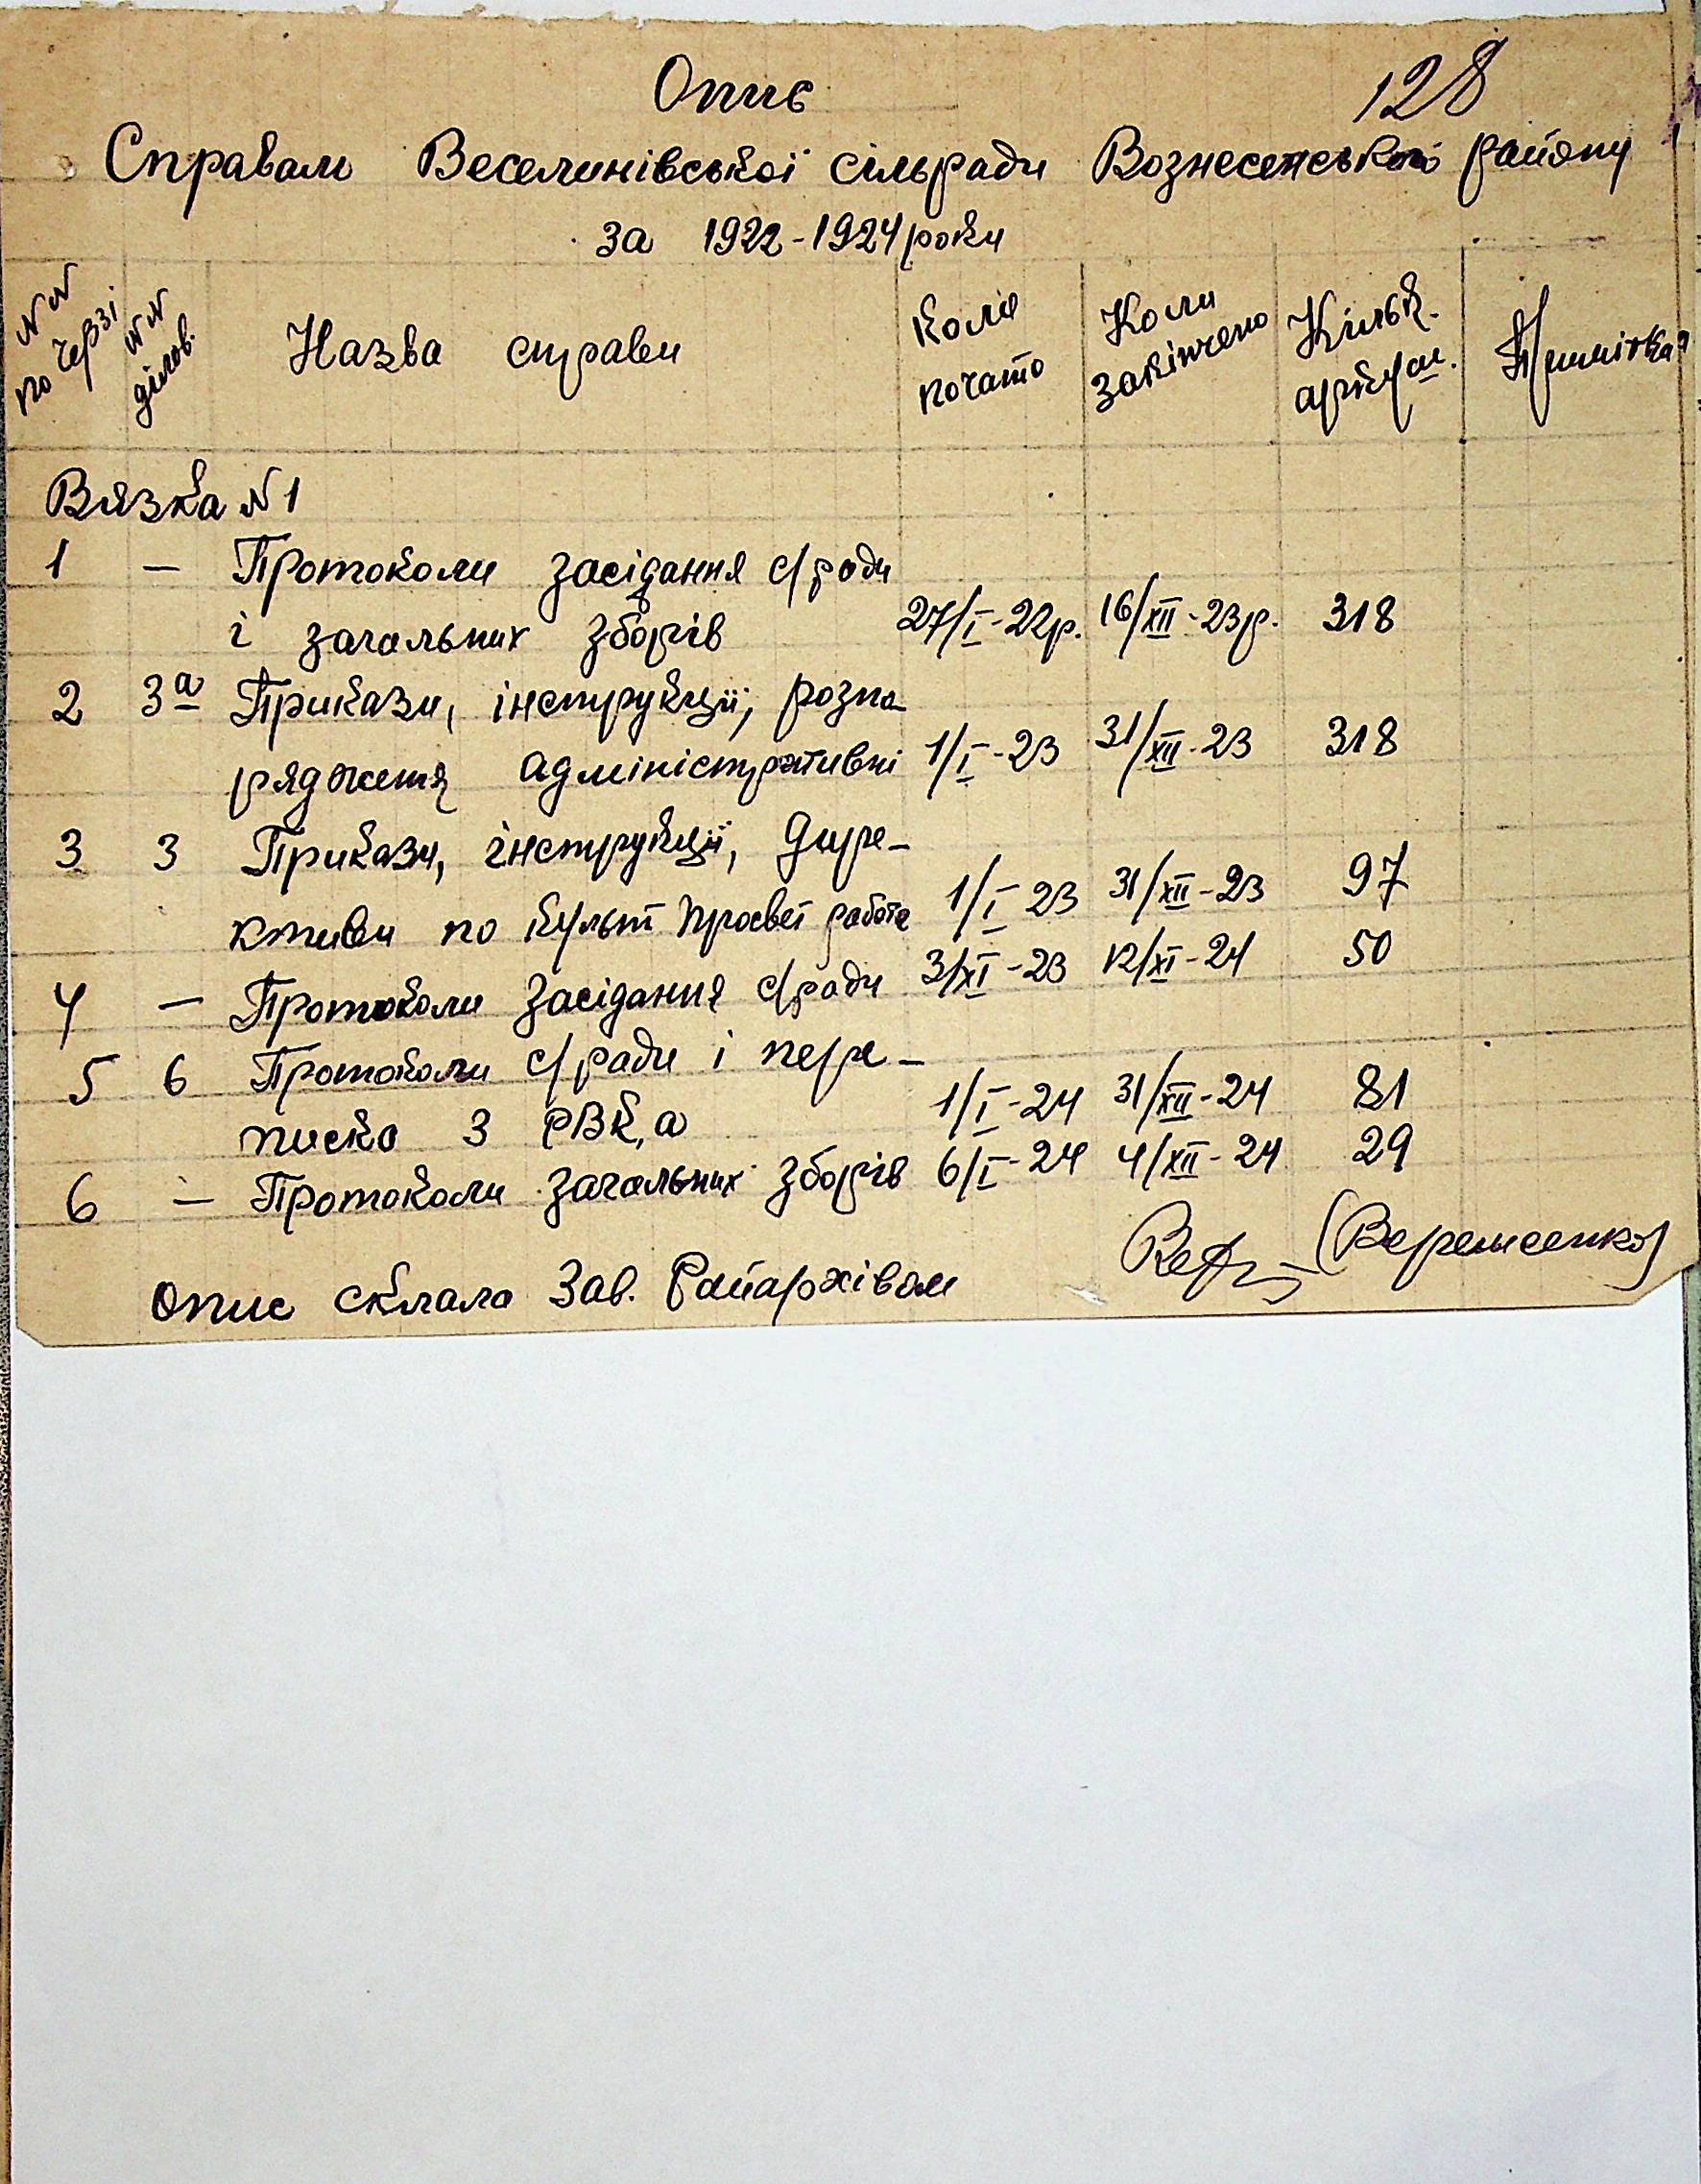 Опис
128
Справам Веселинівської сільради Вознесенського району
за 1922-1924 роки
NN по черзі
NN ділов.
Назва справи
Коли почато
Коли закінчено
Кільк. аркуш.
Примітка
Вязка N1
1 — Протоколи засідання с/ради
і загальних зборів 27/I-22р. 16/XII-23р. 318
2 3а Прикази, інструкції, розпо-
рядження адміністративні 1/I-23 31/XII-23 318
3 3 Прикази, інструкції, дире-
ктиви по культ просвет работе 1/I-23 31/XII-23 97
4 — Протоколи засідання с/ради 3/XI-23 12/XI-24 50
5 6 Протоколи с/ради і пере-
писка з РВК,а 1/I-24 31/XII-24 81
6 — Протоколи загальних зборів 6/I-24 4/XII-24 29
Опис склала Зав. Райархівом (Веремсенко)